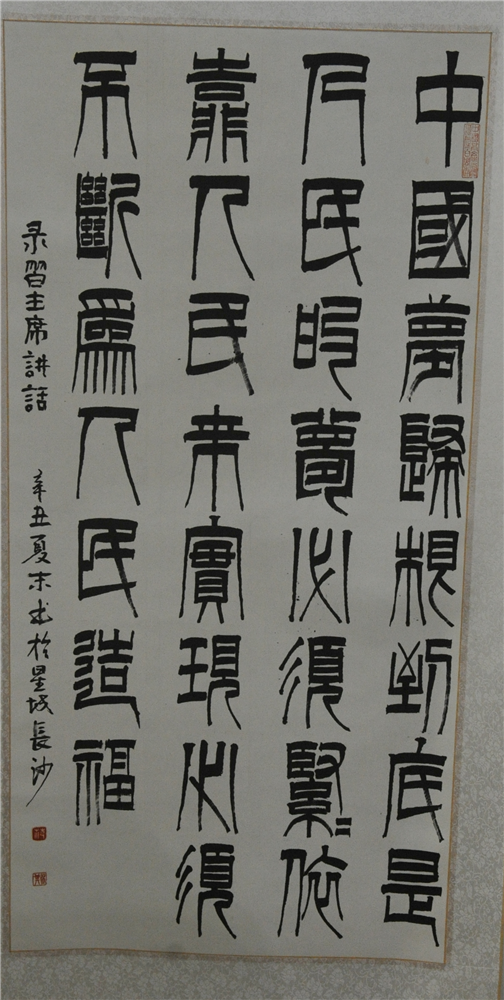 中國夢歸根到底是
人民的夢必須緊〻依
靠人民來實現必須
不斷爲人民造福
录習主席講話 辛丑夏末书於星城長沙